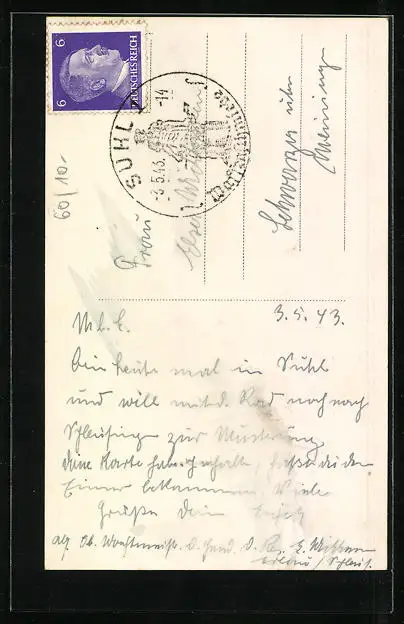 DEUTSCHES REICH
6 6
SUHL
-3.5.43.-14
60/10-
Frau
Else
Schwarza über
Meiningen
3.5.43.
M.l.E.
Bin heute mal in Suhl
und will mit d. Rad noch nach
Schleusingen zur Musterung
deine Karte habe erhalten, hast du den
Eimer bekommen. Viele
Grüße Dein Erich
Ob. Wachtmeist. d. Gend. d. Res. E.